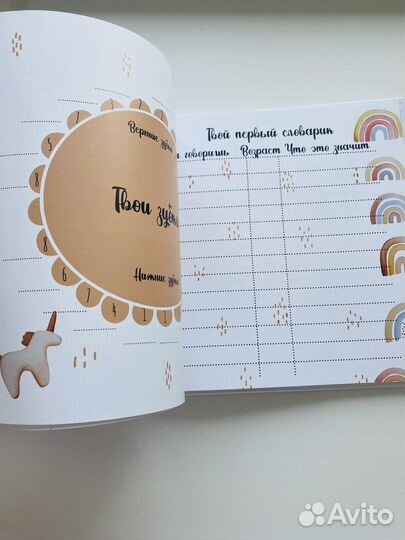 Верхние
Твои
Нижние
5 7
8
8
6
7 4 1 1
Твой первый словарик
говоришь Возраст Что это значит
Avito